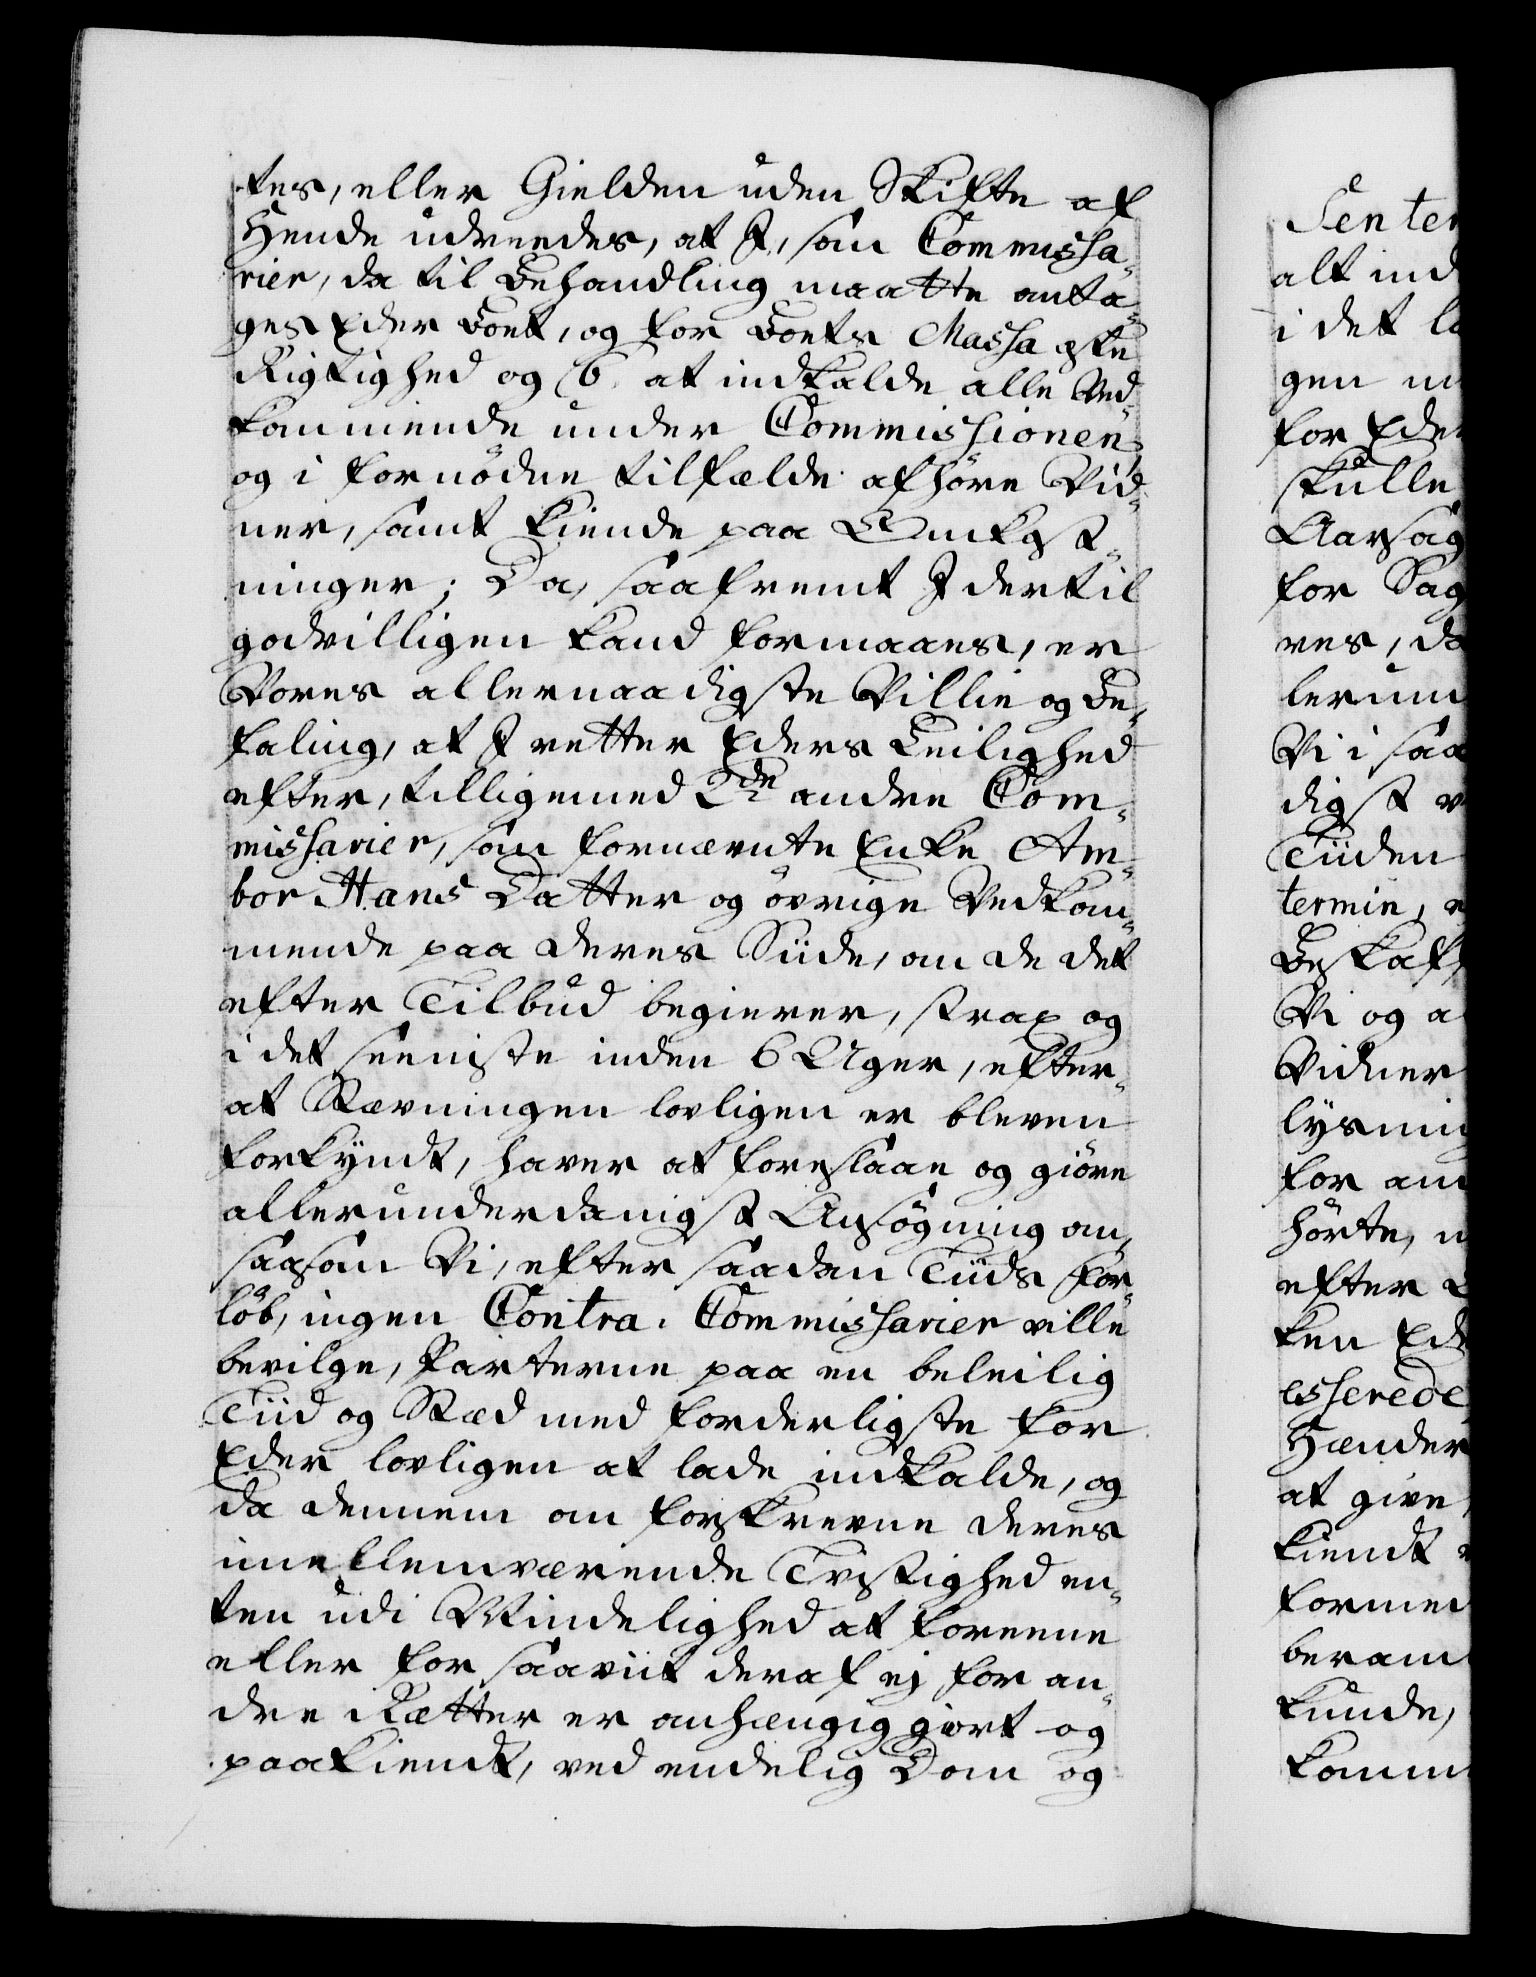 tes, eller Gielden uden Skifte af
Hende udreedes, at I, som Commissa-
rier, da til Behandling maatte anta-
ges Eder Boet, og for Boets Massa æske
Rigtighed og 6. at indkalde alle Ved-
kommende under Commissionen
og i fornødne tilfælde afhøre Vid-
ner, samt kiende paa Omkost-
ninger; Da, saafremt I dertil
godvilligen kand formaaes, er
Vores allernaadigste Villie og Be-
faling, at I retter Eders Leilighed
efter, tilligemed 2de andre Com-
missarier, som fornævnte Enke Am-
bor Hans Datter og øvrige Vedkom-
mende paa deres Siide, om de det
efter Tilbud begierer, strax og
i det seeniste inden 6 Uger, efter-
at Stævningen lovligen er bleven
forkyndt, haver at foreslaae og giøre
allerunderdanigst Ansøgning om,
saasom Vi, efter saadan Tiids For-
løb, ingen Contra-Commissarier ville
bevilge, Parterne paa en beleilig
Tiid og Stæd med forderligste for
Eder lovligen at lade indkalde, og
da dennem om forskrevne deres
imellemværende Tvistighed en-
ten udi Mindelighed at foreene
eller for saaviit deraf ej for an-
dre Rætter er anhængig giort og
paakiendt, ved endelig Dom og
Senten
alt ind
i det l
gen
for Eder
skulle
Aarsag
for Sag
res, da
lerum
Vi i saa
digst
Tiiden
termin,
Beskaf
Vi og a
Vidner
lysning
for an
hørte,
efter
ken Ed
esserede
Hænder
at give
kiendt
formed
beram
kunde,
komm